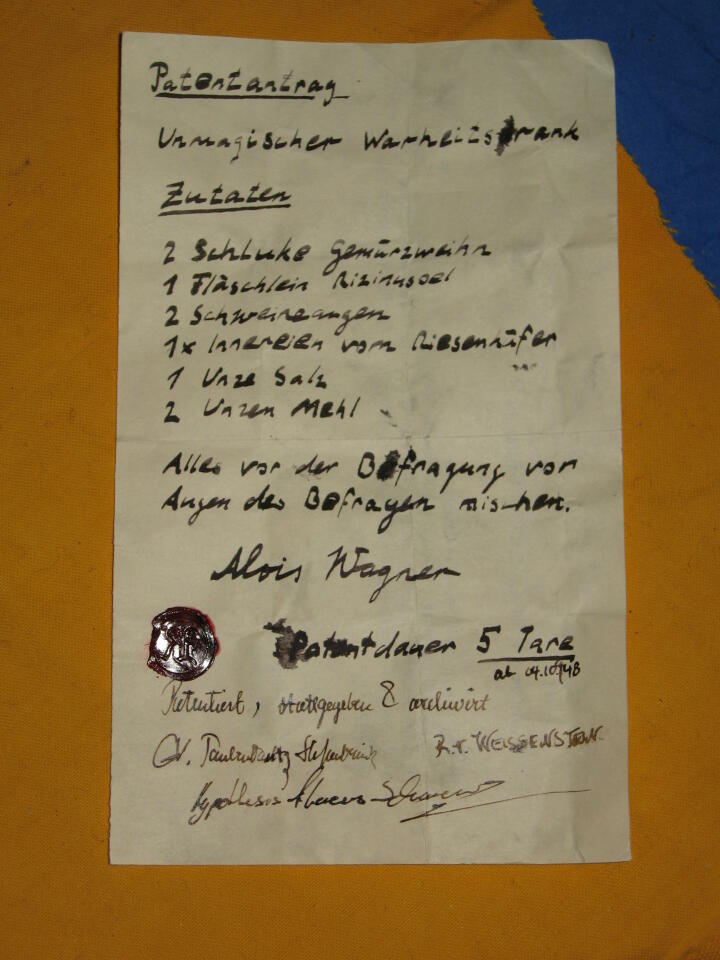 Patentantrag
Unmagischer Warheitstrank
Zutaten
2 Schluke Gewürzweihn
1 Fläschlein Rizinusoel
2 Schweineaugen
1x Innereien vom Riesenkäfer
1 Unze Salz
2 Unzen Mehl
Alles vor der Befragung vor
Augen des Befragen mischen.
Alois Wagner
Patentdauer 5 Tare
ab
Patentiert, stattgegeben & archiviert
R.v. WEISSENSTEIN
Hypothesis Abacus